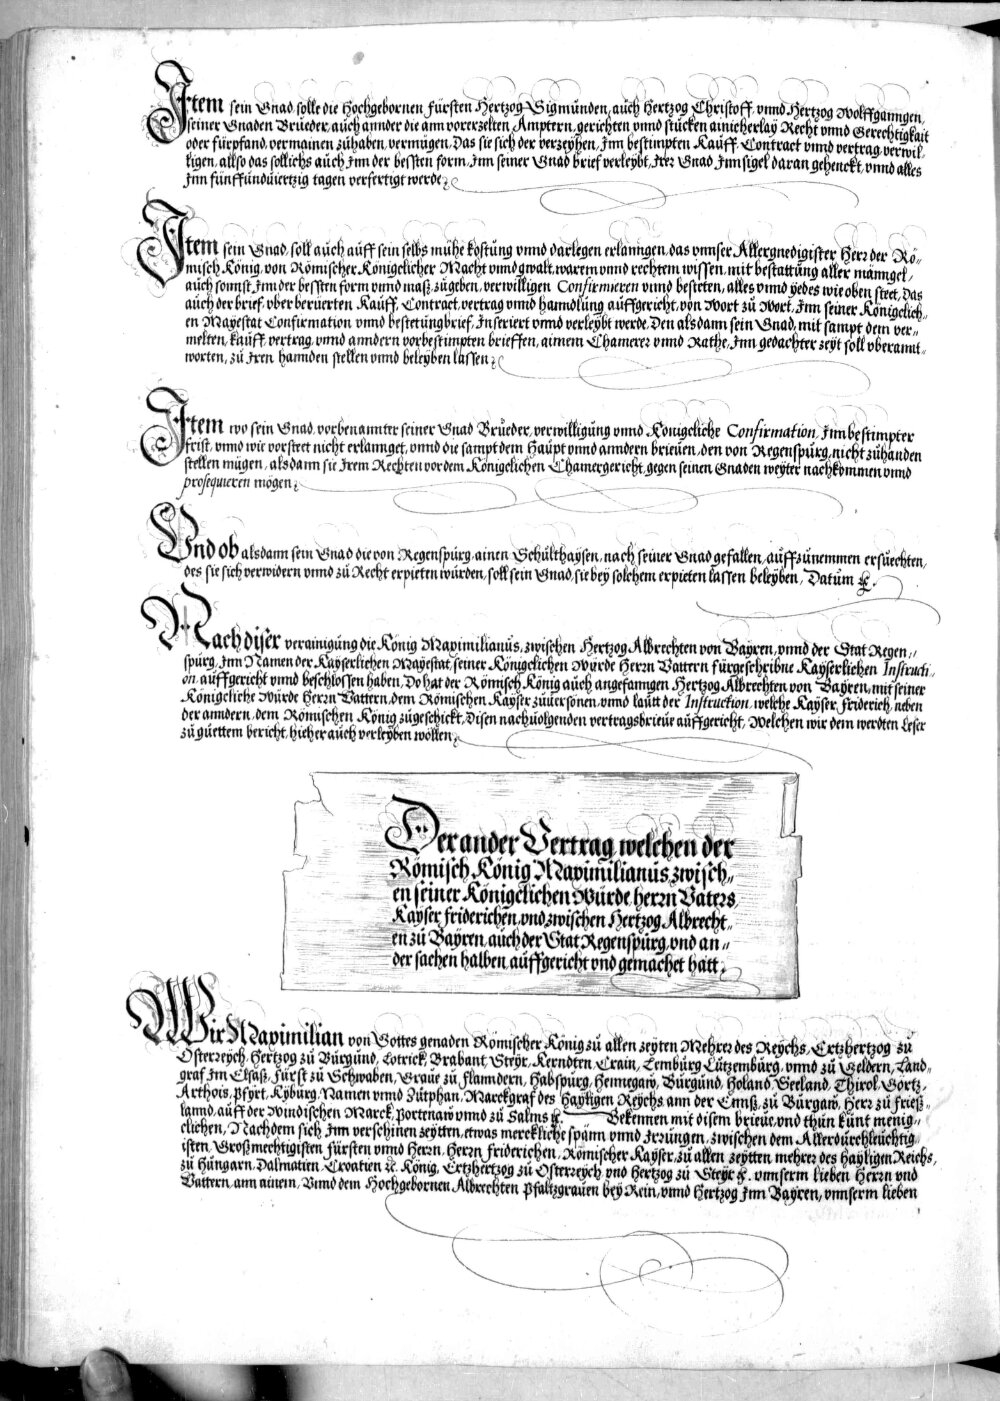 Item sein Gnad, solle die Hochgebornen Fürsten Hertzog Sigmünden, auch Hertzog Christoff, vnnd Hertzog Wolffganngen,
seiner Gnaden Brüeder, auch annder die ann vorerzelten Ämptern, gerichten vnnd stücken ainicherlay Recht vnnd Gerechtigkait
oder fürpfand, vermainen zühaben, vermügen, Das sie sich der verzeyhen, Jnn bestimpten Kauff, Contract vnnd vertrag, verwil-
ligen, allso das sollichs auch Jnn der bessten form, Jnn seiner Gnad brief verleybt, Jrer Gnad Jnnsigel daran gehenckt, vnnd alles
Jnn fünffundüiertzig tagen verfertigt werde,
Item sein Gnad, soll auch aüff sein selbs mühe kostüng vnnd darlegen erlanngen, das vnnser Allergnedigister Herr der Rö-
misch König, von Römischer Königclicher Macht vnnd gwalt, warem vnnd rechtem wissen, mit bestattüng aller männgel,
auch sonnst Jnn der bessten form vnnd maß, zügeben, verwilligen Confirmieren vnnd besteten, alles vnnd yedes wie oben steet, Das
auch der brief, vber berüerten Kaüff, Contract, vertrag vnnd hanndlüng aüffgericht, von Wort zü Wort, Jnn seiner Königclich-
en Mayestat Confirmation vnnd bestetüngbrief, Jnseriert vnnd verleybt werde, Den alsdann sein Gnad, mit sampt dem ver-
melten, kaüff, vertrag, vnnd anndern vorbestimpten brieffen, ainem Chamerer vnnd Rathe, Jnn gedachter zeyt soll vberannt-
worten, zü Jren hannden stellen vnnd beleyben lassen,
Item wo sein Gnad, vorbenannter seiner Gnad Brüeder, verwilligüng vnnd Königcliche Confirmation, Jnn bestimpter
frist, vnnd wie vorsteet nicht erlannget, vnnd die sampt dem Haüpt vnnd anndern brieuen, den von Regenspürg, nicht zühanden
stellen mügen, alsdann sie Jrem Rechten vor dem Königclichen Chamergericht, gegen seinen Gnaden weyter nachkommen vnnd
prosequieren mögen,
Vnd ob alsdann sein Gnad die von Regenspürg, ainen Schülthaysen, nach seiner Gnad gefallen, aüffzünemmen ersüechten,
des sie sich verwidern vnnd zü Recht erpieten würden, soll sein Gnad, sie bey solchem erpieten lassen beleyben, Datüm ꝛc.
Nach diser verainigüng die König Maximilianüs, zwischen Hertzog Albrechten von Bayren, vnnd der Stat Regen-
spürg, Jnn Namen der Kayserlichen Mayestat, seiner Königclichen Würde Herrn Vattern fürgeschribne Kayserlichen Instructi-
on, aüffgericht vnnd beschlossen haben, Do hat der Römisch König aüch angefanngen Hertzog Albrechten von Bayren, mit seiner
Königcliche Würde Herrn Vattern, dem Römischen Kayser züüersönen, vnnd laütt der Instruction, welche Kayser Friderich, neben
der anndern, dem Römischen König zügeschickt, Disen nachüolgenden vertragsbrieue aüffgericht, Welchen wir dem werdten Leser
zü güettem bericht, hieher aüch verleyben wöllen,
Der ander Vertrag, welchen der
Römisch König Maximilianus, zwisch-
en seiner Königclichen Würde, herrn Vaters,
Kayser friderichen, vnd zwischen Hertzog Albrecht-
en zü Bayren, aüch der Stat Regenspürg, vnd an-
der sachen halben, aüffgericht vnd gemachet hatt,
Wir Maximilian von Gottes genaden Römischer König zü allen zeyten Mehrer des Reychs, Ertzhertzog zü
Österreych, Hertzog zü Bürgünd, Lotrick, Brabant, Steyr, Kerndten, Crain, Lembürg, Lützembürg, vnnd zü Geldern, Land-
graf Jm Elsaß, Fürst zü Schwaben, Graüe zü Flanndern, Habspürg, Hennegaw, Bürgünd, Holand, Seeland, Thirol, Görtz,
Arthois, Pfyrt, Kybürg, Namen vnnd Zütphan, Marckgraf des Hayligen Reychs ann der Ennß, zü Bürgaw, Herr zü Frieß-
lannd, auff der Windischen Marck, Portenaw vnnd zü Salins ꝛc. Bekennen mit disem brieue, vnd thün künt menig-
clichen, Nachdem sich Jnn verschinen zeytten, etwas merckliche spänn vnnd Jrrüngen, zwischen dem Allerdürchleüchtig-
isten, Großmechtigisten Fürsten vnnd Herrn, Herrn Friderichen, Römischer Kayser, zü allen zeytten mehrer des hayligen Reichs,
zü Hüngarn, Dalmatien, Croatien ꝛc. König, Ertzhertzog zü Osterreych vnd Hertzog zü Steyr ꝛc. vnnserm lieben Herrn vnd
Vattern, ann ainem, Vnnd dem Hochgebornen Albrechten Pfaltzgrauen bey Rein, vnnd Hertzog Jnn Bayren, vnnserm lieben